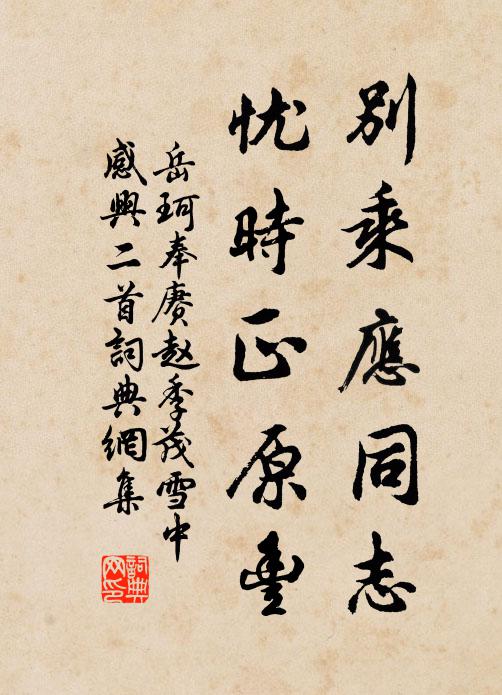 別乘應同志
忧時正原豊
岳珂奉賡赵季茂雪中
感興二首詞典網集
詞典
网印